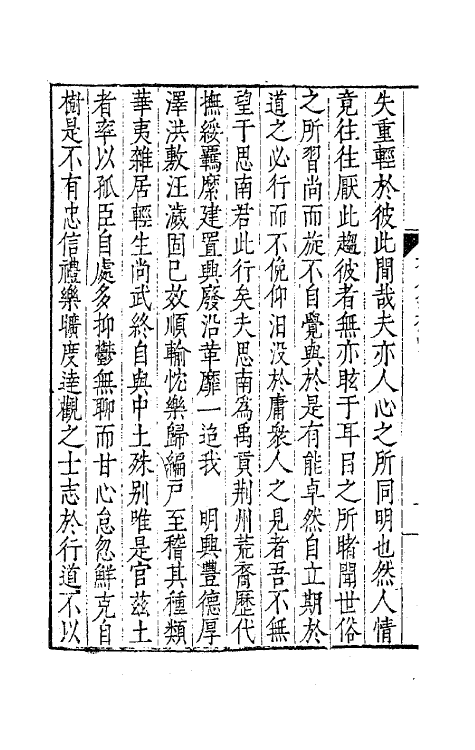 失重輕於彼此間哉夫亦人心之所同明也然人情
竟往往厭此趨彼者無亦眩于耳目之所睹聞世俗
之所習尚而旋不自覺與於是有能卓然自立期於
道之必行而不俛仰汨没於庸衆人之見者吾不無
望于思南君此行矣夫思南爲禹貢荆州荒裔歷代
撫綏羈縻建置興廢沿革靡一迨我　明興豐德厚
澤洪敷汪濊固已效順輸忱樂歸編戸至稽其種類
華夷雜居輕生尚武終自與中土殊别唯是官兹土
者率以孤臣自處多抑鬱無聊而甘心怠忽鮮克自
樹是不有忠信禮樂曠度逹觀之士志於行道不以